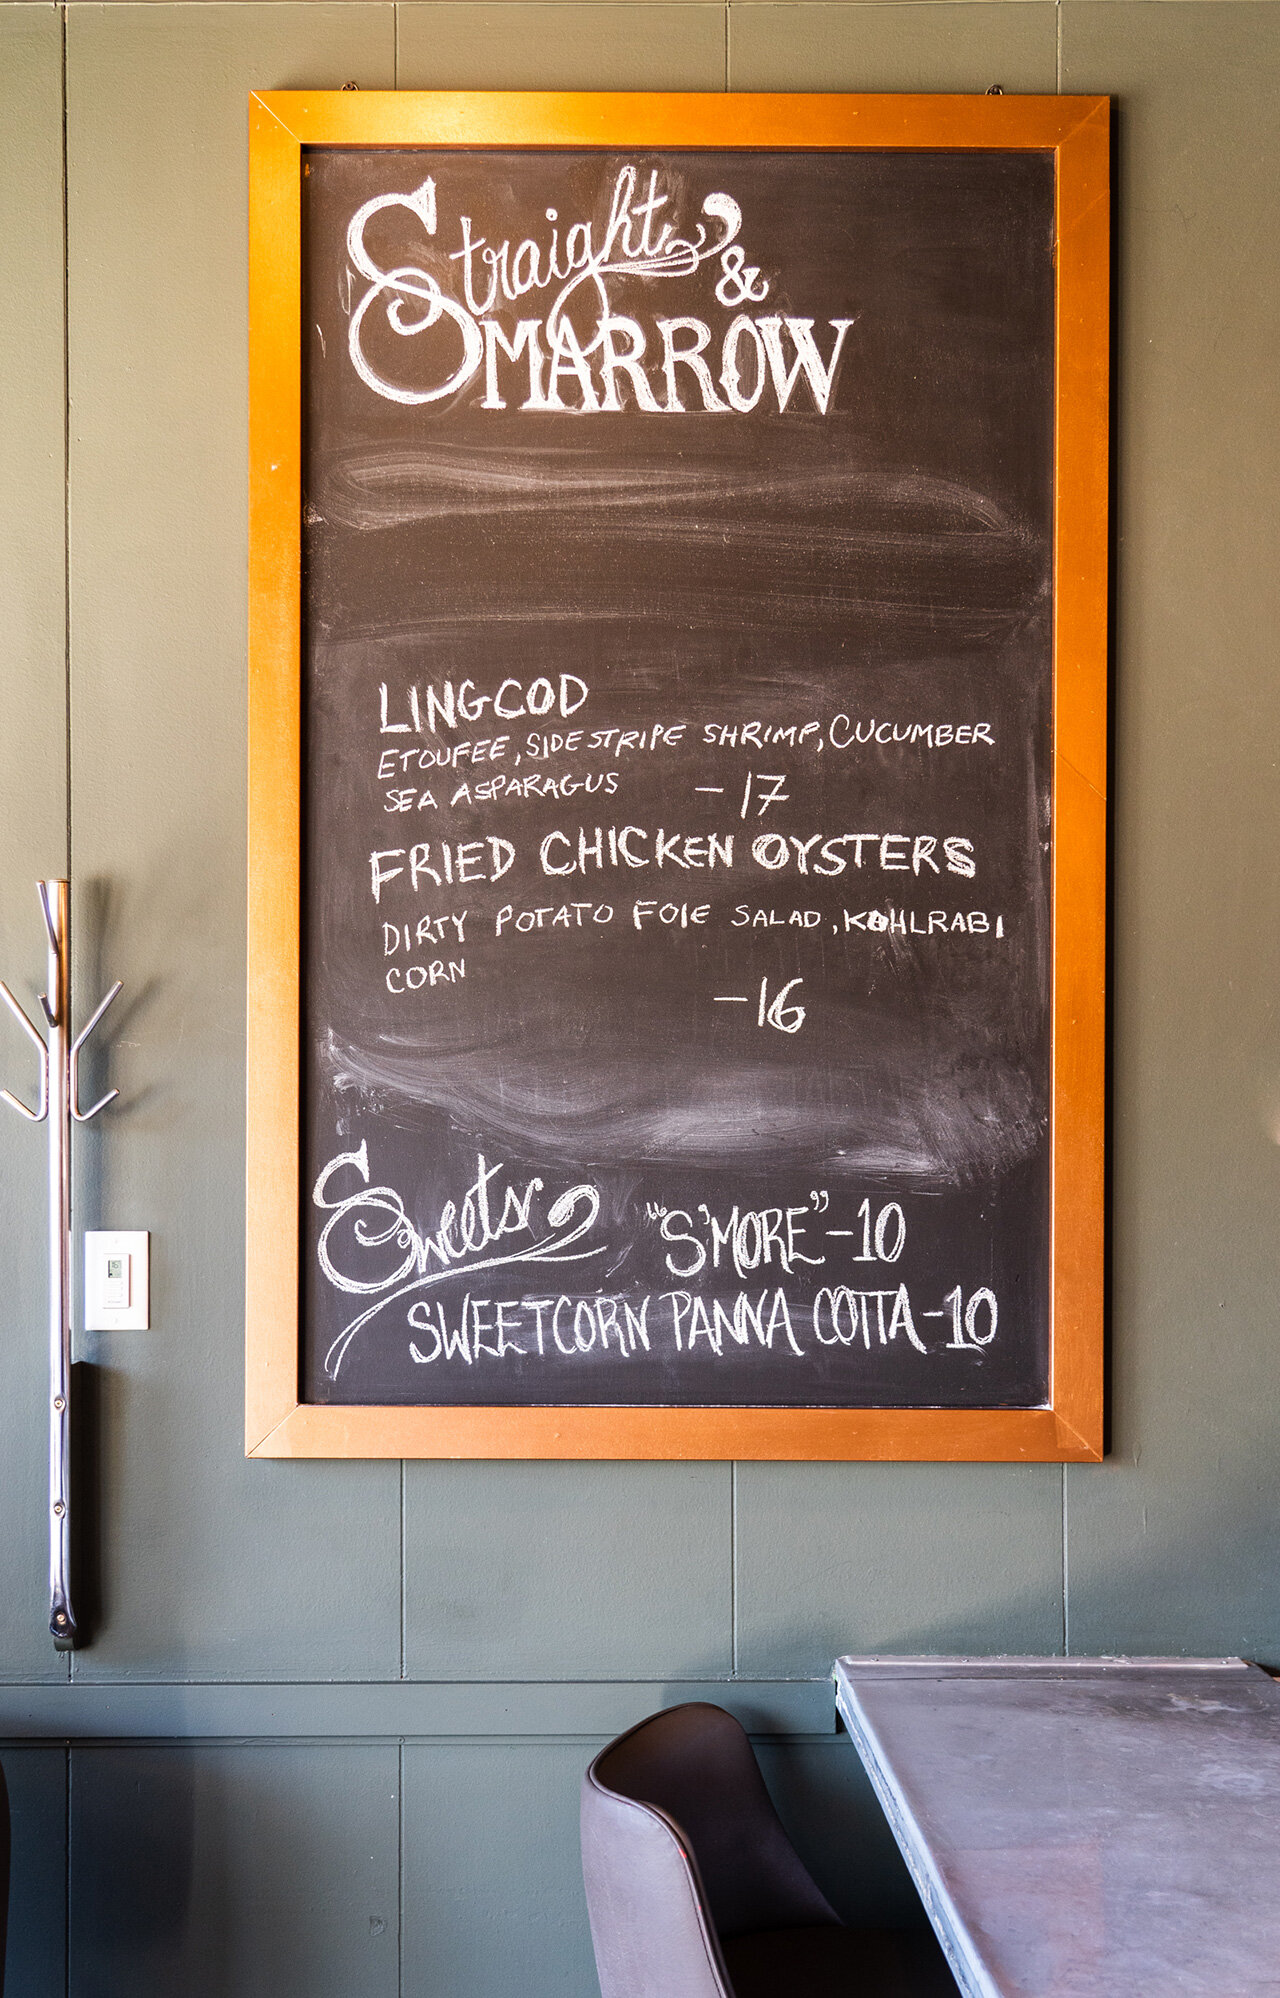 Straight &
MARROW
LINGCOD
ETOUFEE, SIDESTRIPE SHRIMP, CUCUMBER
SEA ASPARAGUS -17
FRIED CHICKEN OYSTERS
DIRTY POTATO FOIE SALAD, KOHLRABI
CORN
-16
Sweets "S'MORE"-10
SWEETCORN PANNA COTTA-10